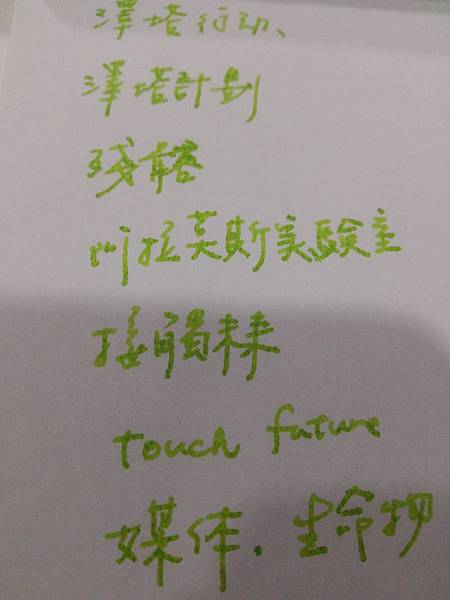 澤塔行动、
澤塔計劃
残骸
阿拉莫斯実驗室
接觸未来
touch future
媒体.生命物